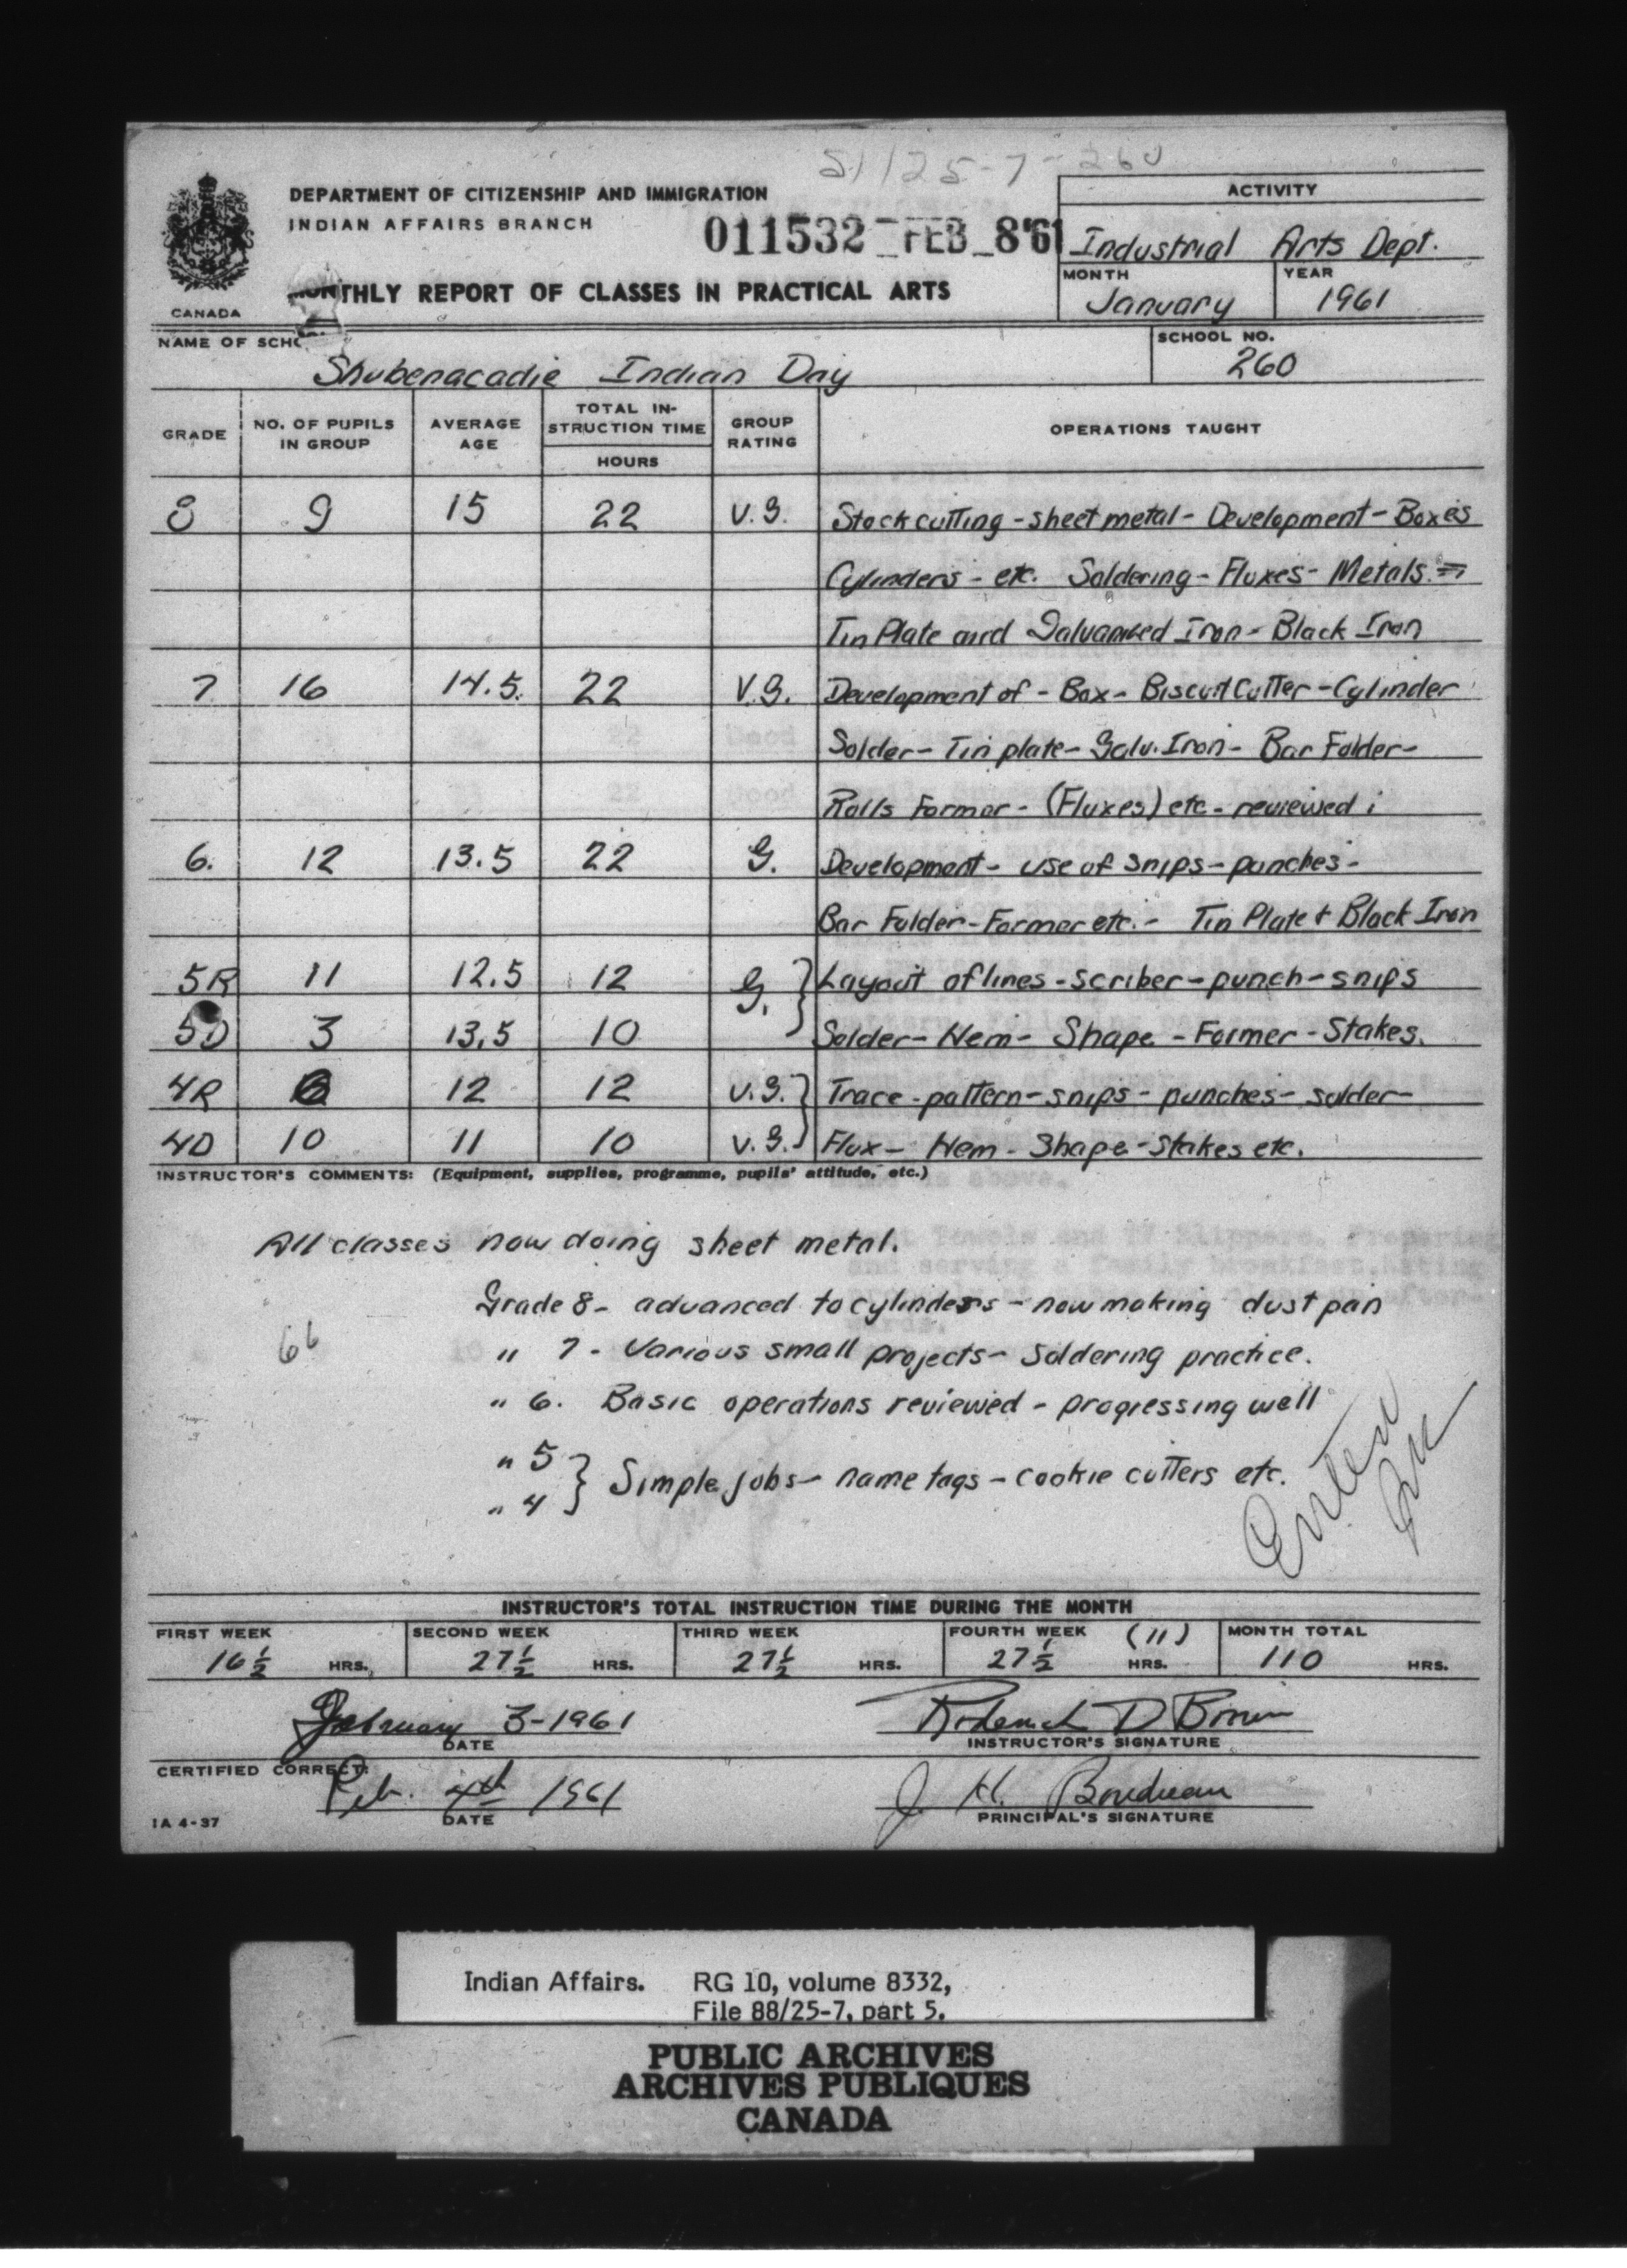 51/25-7-260
DEPARTMENT OF CITIZENSHIP AND IMMIGRATION
INDIAN AFFAIRS BRANCH
011532 FEB 8'61
THLY REPORT OF CLASSES IN PRACTICAL ARTS
CANADA
ACTIVITY
Industrial Arts Dept.
MONTH YEAR
January 1961
NAME OF SCHO
Shubenacadie Indian Day
SCHOOL NO.
260
GRADE
NO. OF PUPILS IN GROUP
AVERAGE AGE
TOTAL IN-STRUCTION TIME
HOURS
GROUP RATING
OPERATIONS TAUGHT
8 9 15 22 V.G. Stock cutting - sheet metal - Development - Boxes
Cylinders - etc. Soldering - Fluxes - Metals =
Tin Plate and Galvanized Iron - Black Iron
7 16 14.5 22 V.G. Development of - Box - Biscuit Cutter - Cylinder
Solder - Tin plate - Galv. Iron - Bar Folder -
Rolls Former - (Fluxes) etc - reviewed
6. 12 13.5 22 G. Development - use of snips - punches -
Bar Folder - Former etc. - Tin Plate & Black Iron
5R 11 12.5 12 G. } Layout of lines - scriber - punch - snips
5D 3 13.5 10 Solder - Hem - Shape - Former - Stakes.
4R 12 12 V.G. } Trace - pattern - snips - punches - solder -
4D 10 11 10 V.G. Flux - Hem - Shape - Stakes etc.
INSTRUCTOR'S COMMENTS: (Equipment, supplies, programme, pupils' attitude, etc.)
All classes now doing sheet metal.
Grade 8 - advanced to cylinders - now making dust pan
" 7 - Various small projects - Soldering practice.
" 6. Basic operations reviewed - progressing well
" 5
" 4 } Simple jobs - name tags - cookie cutters etc.
66
Entered
INSTRUCTOR'S TOTAL INSTRUCTION TIME DURING THE MONTH
FIRST WEEK SECOND WEEK THIRD WEEK FOURTH WEEK (11) MONTH TOTAL
16 1/2 HRS. 27 1/2 HRS. 27 1/2 HRS. 27 1/2 HRS. 110 HRS.
February 3-1961 Roderick D Brown
DATE INSTRUCTOR'S SIGNATURE
CERTIFIED CORRECT:
Feb. 4th 1961 J. H. Boudreau
DATE PRINCIPAL'S SIGNATURE
IA 4-37
Indian Affairs. RG 10, volume 8332,
File 88/25-7, part 5.
PUBLIC ARCHIVES
ARCHIVES PUBLIQUES
CANADA